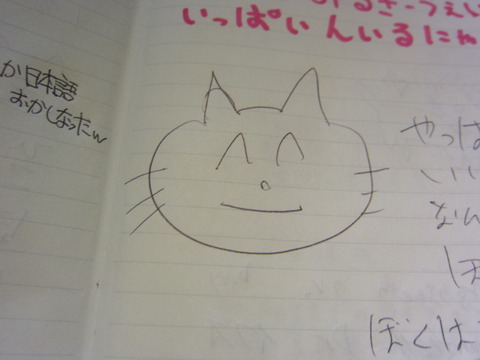 いっぱいんいるにゃ
か日本語
おかしなったw
やっぱ
いい
なん
ぼくは